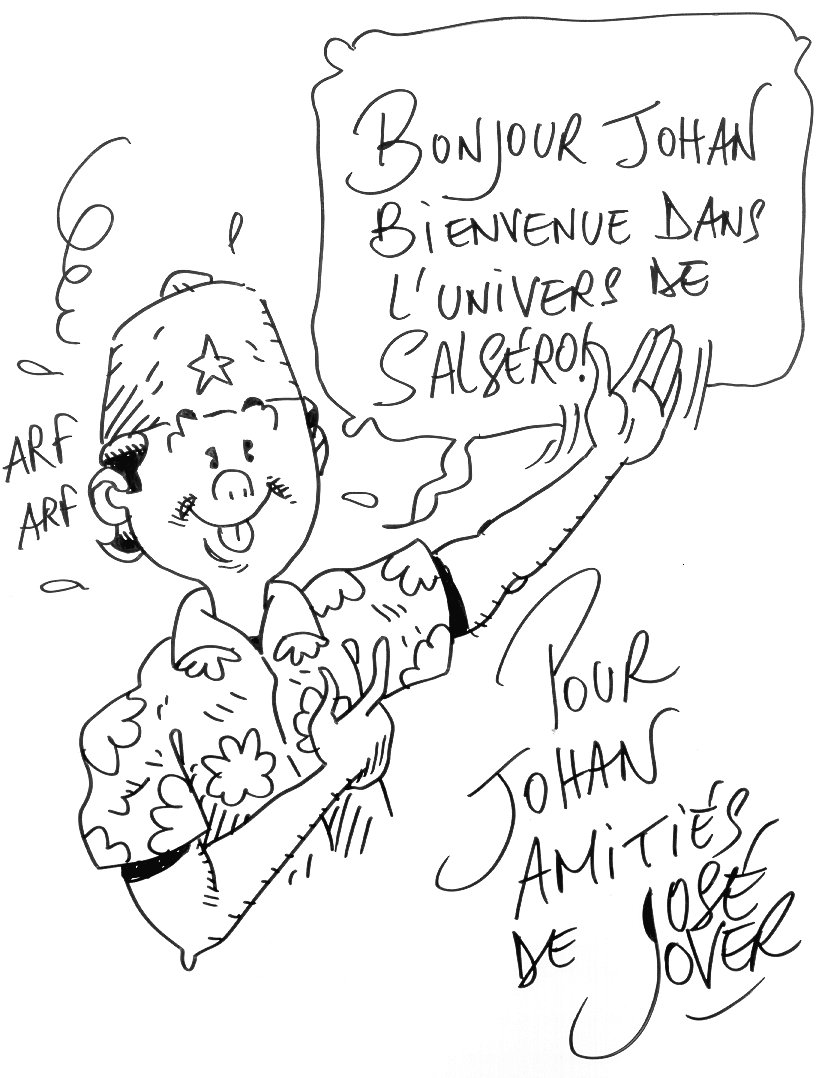 BONJOUR JOHAN
BiENVENUE DANS
L'UNiVERS DE
SALSÉRO!
ARF
ARF
POUR
JOHAN
AMiTiÉS
DE JOSÉ
JOVER